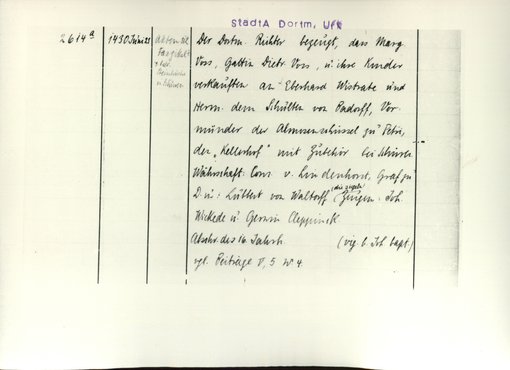 StadtA Dortm, Urk
2614a 1430 Juni 23
Akten
Der Dortm. Richter bezeugt, dass Marg.
Voss, Gattin Dietr. Voss, u. ihre Kinder
verkauften an Eberhard Wistrate und
Herm. dem Schulten von Padorff, Vor-
münder der Almosenschüssel zu Petri,
den "Kellerhof" mit Zubehör bei
Währschaft: Conr. v. Lindenhorst, Graf zu
D. u. Lübbert von Waltorff (die siegeln) Zeugen: Joh.
Wickede u. Gerwin Cleppinck
Abschr. des 16. Jahrh. (vig. b. Joh. bapt.)
vgl. Beiträge V, 5 N° 4.